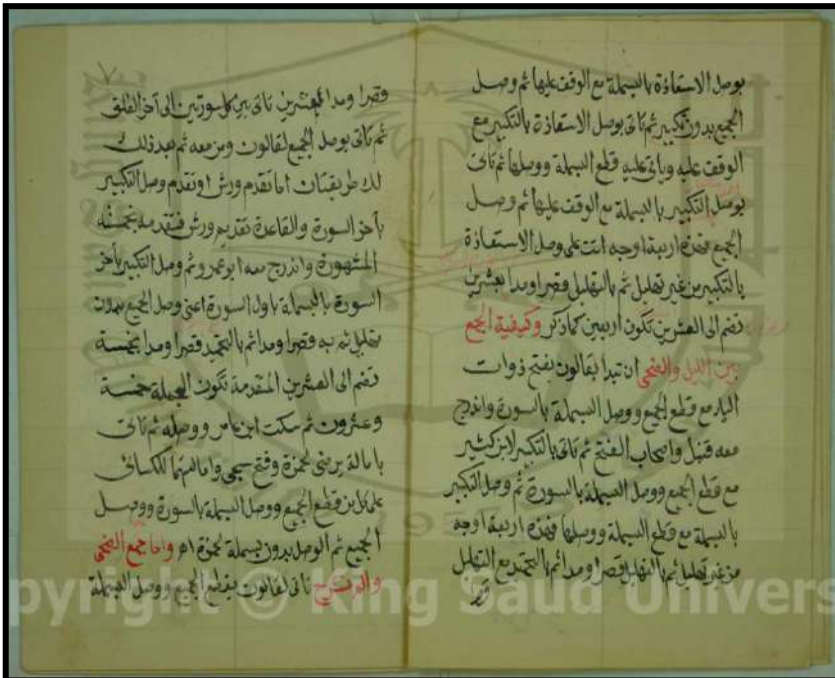 بوصل الاستعاذة بالبسملة مع الوقف عليها ثم وصل
الجميع بدون تكبير ثم تاتى بوصل الاستعاذة بالتكبير مع
الوقف عليه وياتى عليه قطع البسملة ووصلها ثم تاتى
بوصل التكبير بالبسملة مع الوقف عليها ثم وصل
الجميع فهذه اربعة اوجه اتت على وصل الاستعاذة
بالتكبير من غير تهليل ثم بالتهليل قصرا ومدا بعشرين
تضم الى العشرين تكون اربعين كما ذكر وكيفية الجمع
بين الليل والضحى ان تبدا لقالون بفتح ذوات
الياء مع قطع الجميع ووصل البسملة بالسورة واندرج
معه قنبل واصحاب الفتح ثم تاتى بالتكبير لابن كثير
مع قطع الجميع ووصل البسملة بالسورة ثم وصل التكبير
بالبسملة مع قطع البسملة ووصلها فهذه اربعة اوجه
من غير تهليل ثم بالتهليل قصرا ومدا ثم بالتحميد مع التهليل
قصرا ومدا بعشرين تاتى بين كل سورتين الى آخر الفلق
ثم تاتى بوصل الجميع لقالون ومن معه ثم بعد ذلك
لك طريقتان اما تقدم ورش او تقدم وصل التكبير
بآخر السورة والقاعدة تقديم ورش فتقدمه بخمسته
المشهورة واندرج معه ابو عمرو ثم وصل التكبير بآخر
السورة بالبسملة باول السورة اعنى وصل الجميع بدون
تهليل ثم به قصرا ومدا ثم بالتحميد قصرا ومدا بخمسة
تضم الى العشرين المتقدمة تكون الجملة خمسة
وعشرون ثم سكت ابن عامر ووصله ثم تاتى
بامالة يرضى لحمزة وفتح سجى وامالتهما للكسائى
على كل من قطع الجميع ووصل البسملة بالسورة ووصل
الجميع ثم الوصل بدون بسملة لحمزة اه واما جمع الضحى
والم نشرح تاتى لقالون بقطع الجميع ووصل البسملة
Copyright © King Saud Univers